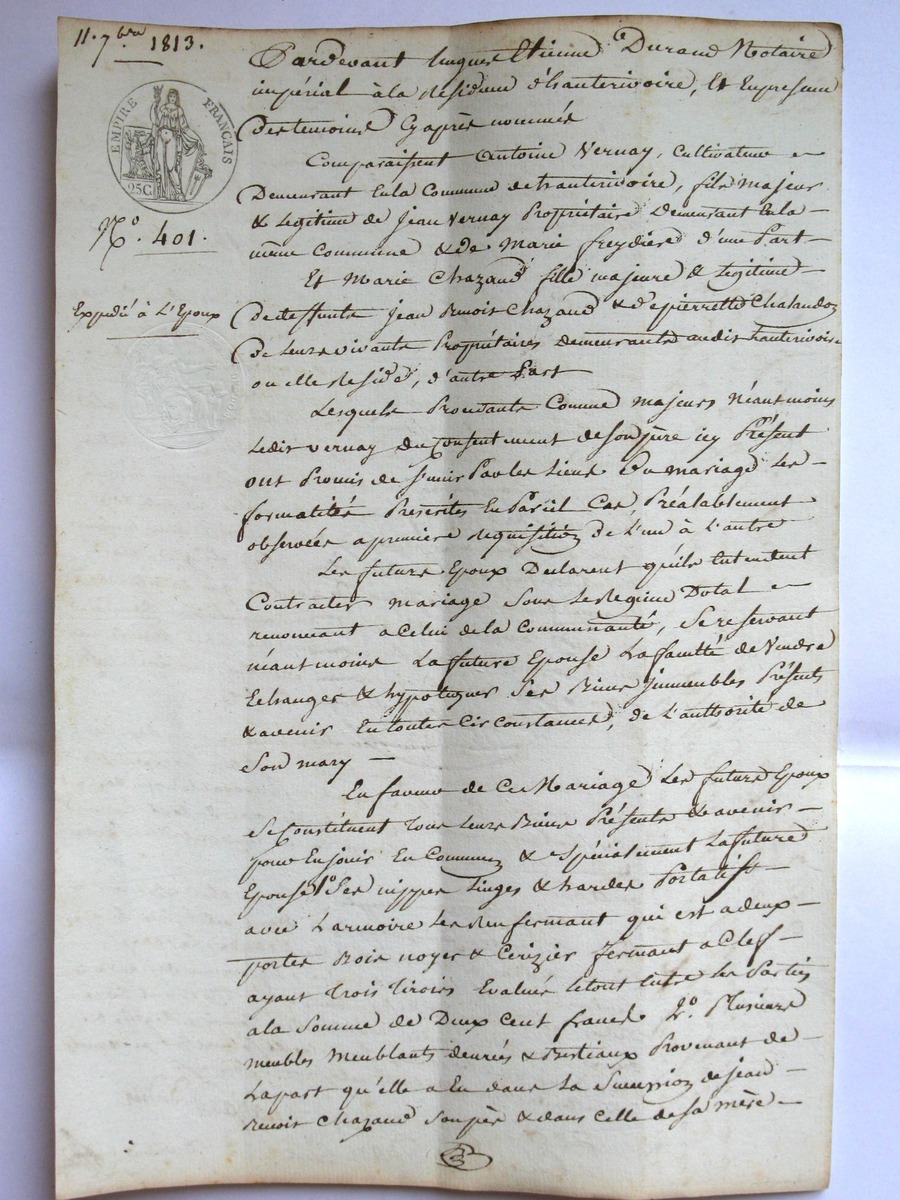 11. 7bre 1813.
EMPIRE FRANÇAIS
25C.
No. 401.
Expédié à L'Epoux
Pardevant hugues Etienne Durand Notaire
impérial à la Residence d'hauterivoire, Et En presence
des temoins Cy après nommés
Comparaissent Antoine Vernay, Cultivateur
Demeurant En la Commune de hauterivoire, fils majeur
& Legitime de Jean Vernay Propriétaire Demeurant En la
même Commune & de Marie freydiere d'une Part
Et Marie Chazaud fille majeure & Legitime
de deffunts Jean Benoit Chazaud & de pierrette Chalandon
de Leurs vivants Propriétaires Demeurants audit hauterivoire
ou elle Reside, d'autre Part
Lesquels Procedants Comme majeurs Néantmoins
Ledit Vernay du Consentement de son père icy Présent
ont Promis de s'unir Par les Liens Du mariage Les
formalités Prescrites En Pareil Cas, Préalablement
observées a première Requisition de L'un à L'autre
Les futurs Epoux Declarent qu'ils Entendent
Contracter mariage Sous Le Regime Dotal En
renoncant a Celui de la Communauté, Se reservant
néantmoins La future Epouse La faculté de Vendre
Echanger & hypotequer Ses Biens immeubles Présents
& avenir En toutes Circonstances, de L'authorité de
Son mary
En faveur de Ce Mariage Les futurs Epoux
Se Constituent Tous Leurs Biens Présents & avenir
pour En jouir En Commun & Spécialement La future
Epouse 1o Ses nippes Linges & hardes Portatifs
avec L'armoire Les Renfermant qui est a deux
portes Bois noyer & Cerizier fermant a Clef
ayant Trois Tiroirs Evalués Le tout Entre Les Parties
a la Somme de Deux Cent francs 2o. Plusieurs
meubles Meublants denrées & Bestiaux Provenant de
La part qu'elle a Eu dans La Succession de Jean
Benoit Chazaud Son père & dans Celle de Sa Mère